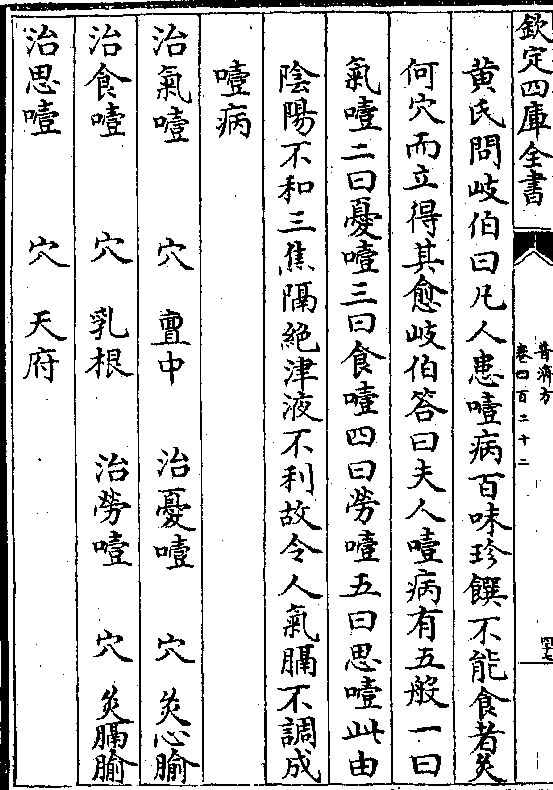 欽定四庫全書
普濟方
卷四百二十二
黄氏問岐伯曰凡人患噎病百味珍饌不能食者灸
何穴而立得其愈岐伯答曰夫人噎病有五般一曰
氣噎二曰憂噎三曰食噎四曰勞噎五曰思噎此由
陰陽不和三焦隔絶津液不利故令人氣膈不調成
噎病
治氣噎 穴 亶中 治憂噎 穴 灸心腧
治食噎 穴 乳根 治勞噎 穴 灸膈腧
治思噎 穴 天府